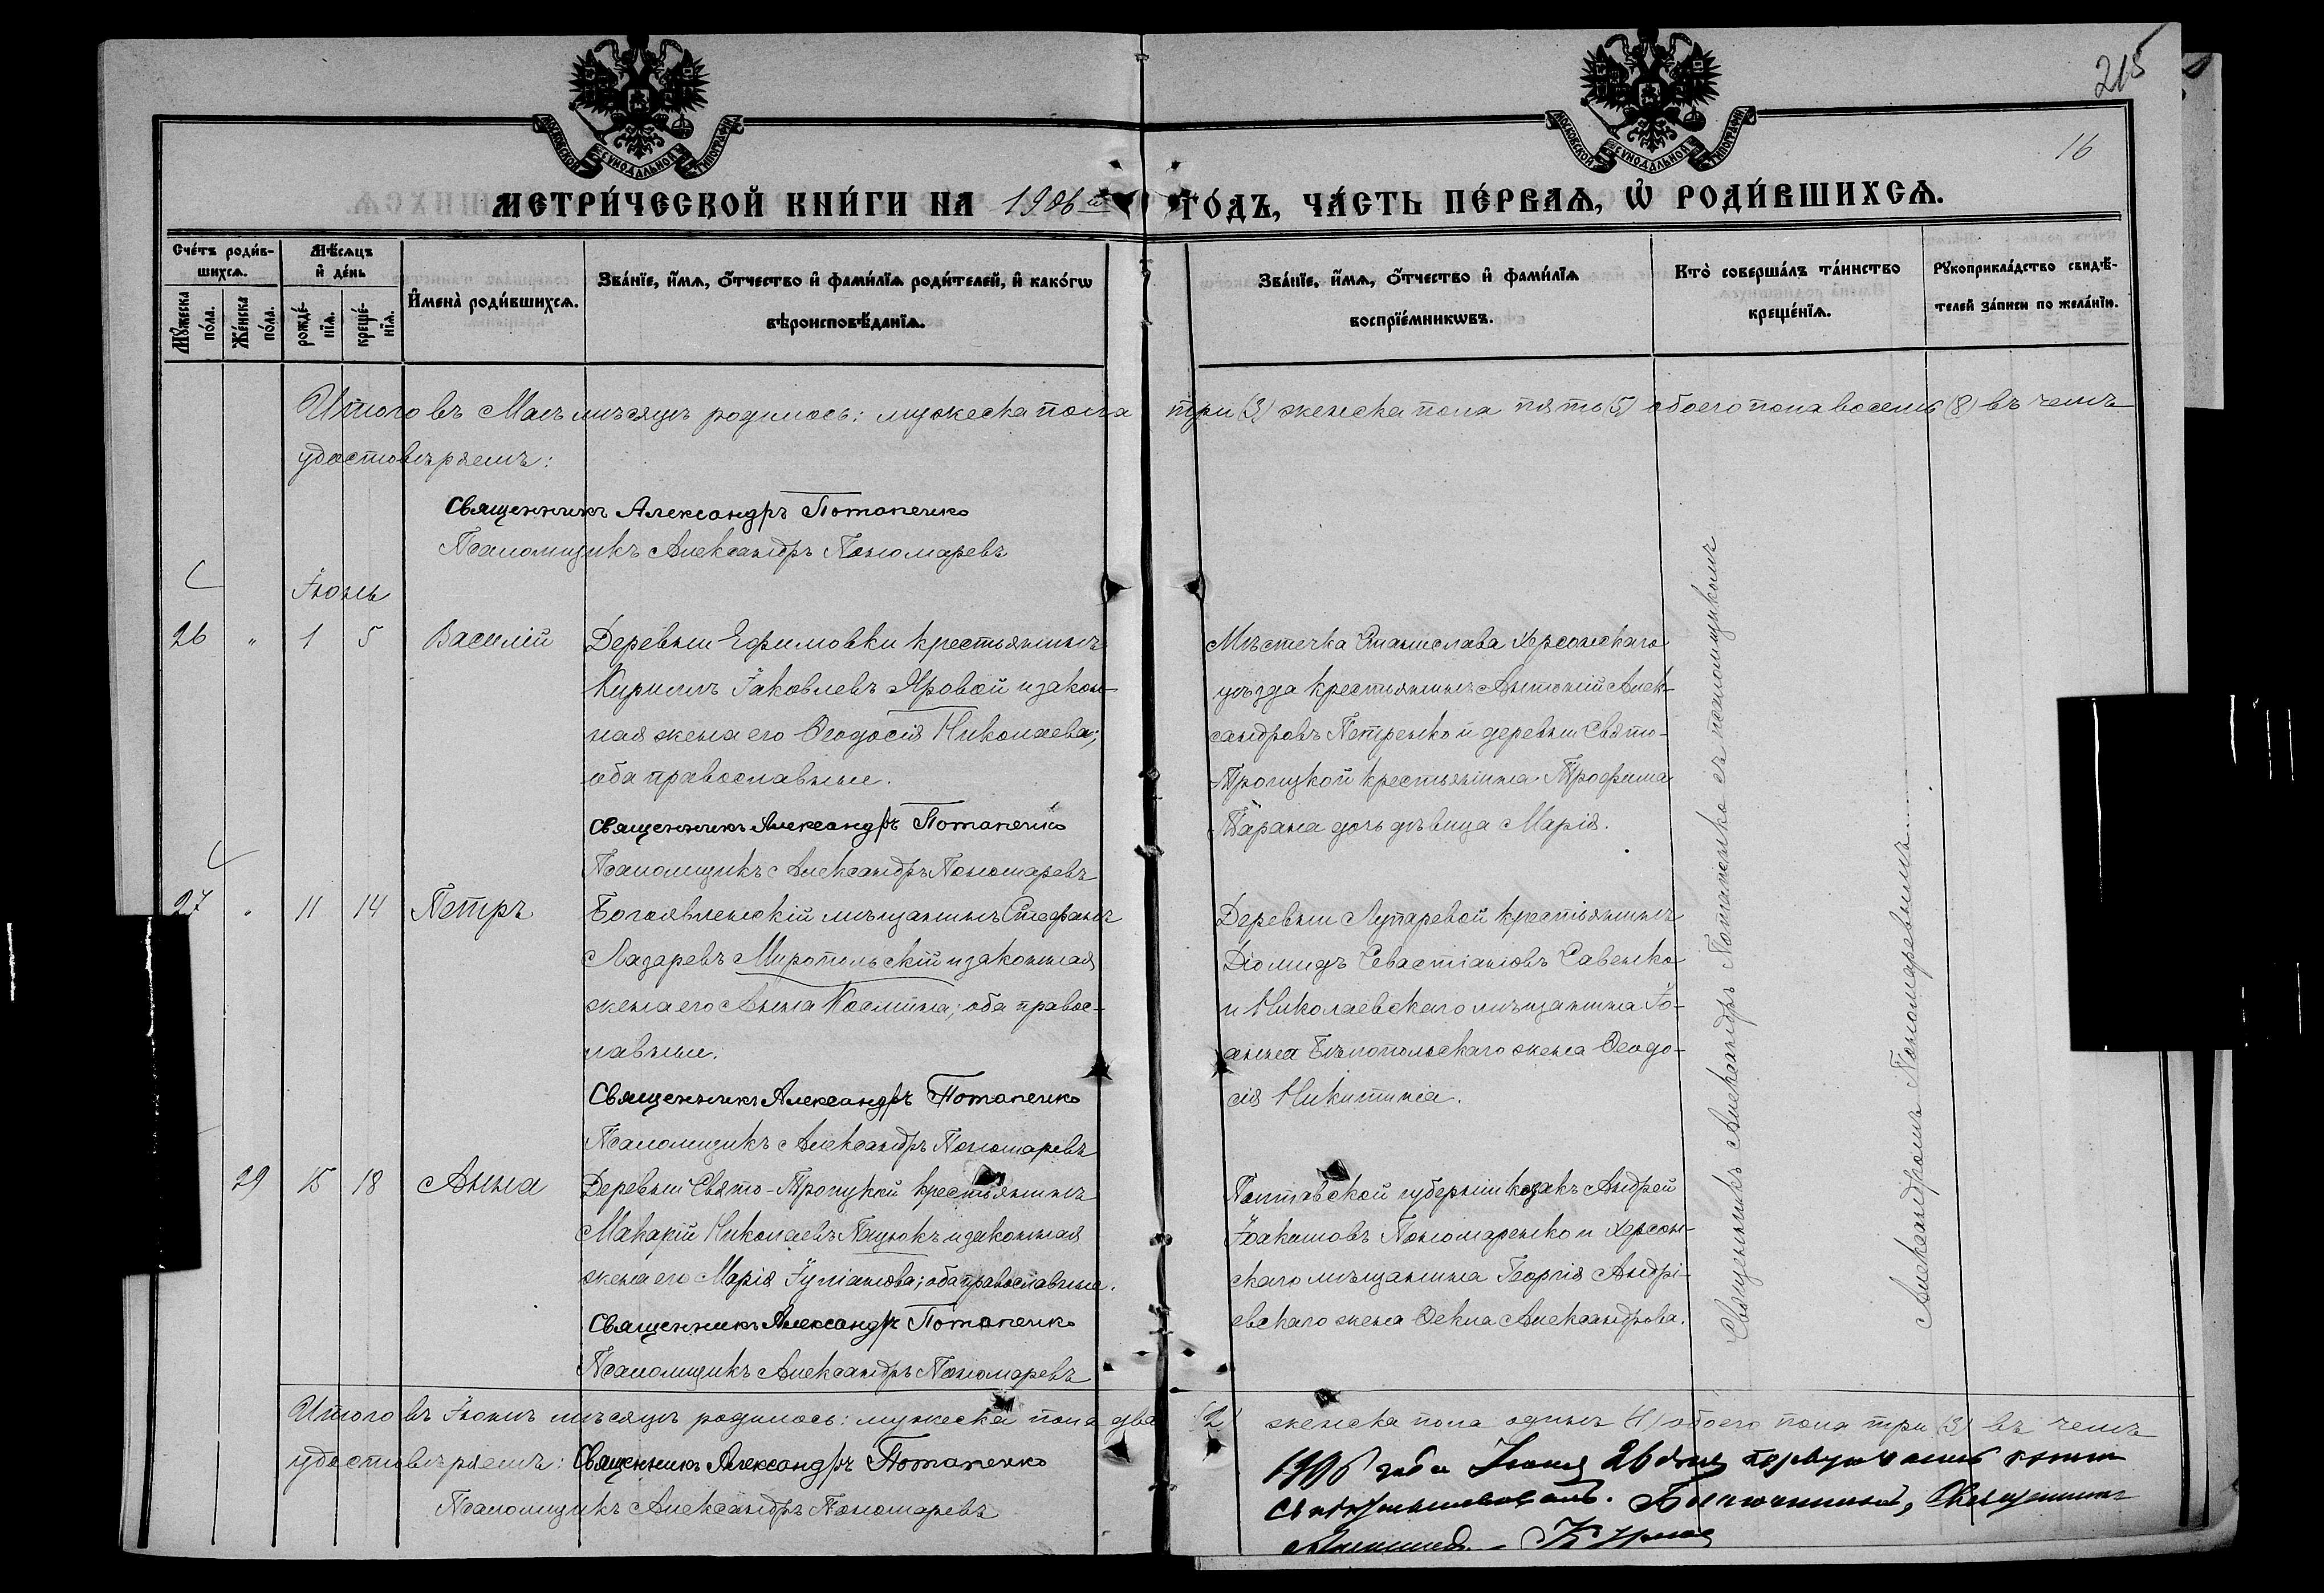 215
16
МОСКОВСКОЙ СѴНОДАЛЬНОЙ ТИПОГРАФІИ
МОСКОВСКОЙ СѴНОДАЛЬНОЙ ТИПОГРАФІИ
МЕТРИ́ЧЕСКОЙ КНИ́ГИ НА 1906 й
ГО́ДЪ, ЧА́СТЬ ПЕ́РВАѦ, Ѡ҆ РОДИ́ВШИХСѦ.
Сче́тъ роди́в-
шихсѧ.
Мꙋ́жеска по́ла.
Же́нска по́ла.
Мѣ́сѧцъ
и҆ де́нь
рожде́-нїѧ.
креще́-нїѧ.
И҆мена̀ роди́вшихсѧ.
Зва́нїе, и҆́мѧ, ѻ҆́тчество и҆ фами́лїѧ роди́телей, и҆ како́гѡ
вѣроисповѣ́данїѧ.
Зва́нїе, и҆́мѧ, ѻ҆́тчество и҆ фами́лїѧ
воспрїе́мникѡвъ.
Кто̀ соверша́лъ та́инство
креще́нїѧ.
Рꙋкоприкла́дство свидѣ́-
телей за́писи по жела́нїю.
Итого въ Маѣ мѣсяцѣ родилось: мужеска пола три (3) женска пола пять (5) обоего пола восемь (8) въ чемъ
удостовѣряемъ:
Священникъ Александръ Потапенко
Псаломщикъ Александръ Пономаревъ
Іюнь
26 " 1 5 Василій
Деревни Ефимовки крестьянинъ
Кириллъ Іаковлевъ Яровой и закон-
ная жена его Ѳеодосія Николаева;
оба православные.
Священникъ Александръ Потапенко
Псаломщикъ Александръ Пономаревъ
Мѣстечка Станислава Херсонскаго
уѣзда крестьянинъ Антоній Алек-
сандровъ Петренко и деревни Свято-
Троицкой крестьянина Трофима
Тарана дочь дѣвица Марія.
27 " 11 14 Петръ
Богоявленскій мѣщанинъ Стефанъ
Лазаревъ Миропольскій и законная
жена его Анна Космина; оба правос-
лавные.
Священникъ Александръ Потапенко
Псаломщикъ Александръ Пономаревъ
Деревни Лупаревой крестьянинъ
Діомидъ Севастіановъ Савенко
и Николаевскаго мѣщанина Іо-
анна Бѣлопольскаго жена Ѳеодо-
сія Никитина.
29 15 18 Анна
Деревни Свято-Троицкой крестьянинъ
Макарій Николаевъ Пацюкъ и законная
жена его Марія Іуліанова; оба православные.
Священникъ Александръ Потапенко
Псаломщикъ Александръ Пономаревъ
Полтавской губерніи козакъ Андрей
Іоакимовъ Пономаренко и Херсон-
скаго мѣщанина Георгія Андрі-
евскаго жена Ѳекла Александрова.
Священникъ Александръ Потапенко съ псаломщикомъ
Александромъ Пономаревымъ
Итого въ Іюнѣ мѣсяцѣ родилось: мужеска пола два (2) женска пола одинъ (1) обоего пола три (3) въ чемъ
удостовѣряемъ: Священникъ Александръ Потапенко
Псаломщикъ Александръ Пономаревъ
1906 года Іюня 26 дня
Благочинный, Священникъ